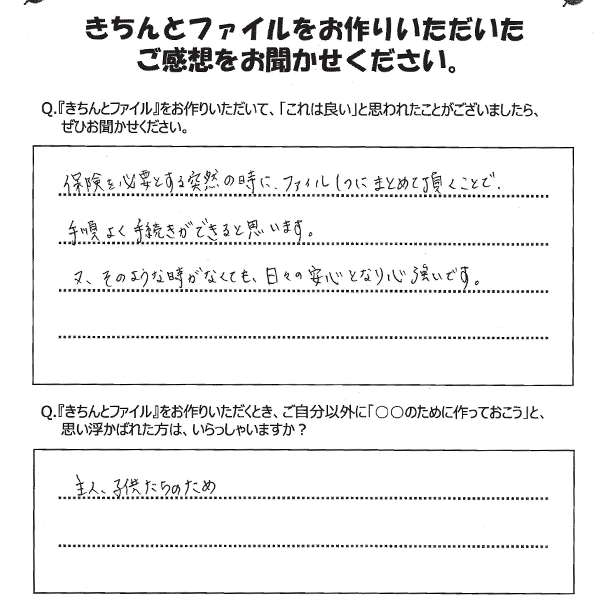 きちんとファイルをお作りいただいた
ご感想をお聞かせください。
Q.『きちんとファイル』をお作りいただいて、「これは良い」と思われたことがございましたら、
ぜひお聞かせください。
保険を必要とする突然の時に、ファイル1つにまとめて頂くことで、
手順よく手続きができると思います。
又、そのような時がなくても、日々の安心となり心強いです。
Q.『きちんとファイル』をお作りいただくとき、ご自分以外に「○○のために作っておこう」と、
思い浮かばれた方は、いらっしゃいますか？
主人、子供たちのため